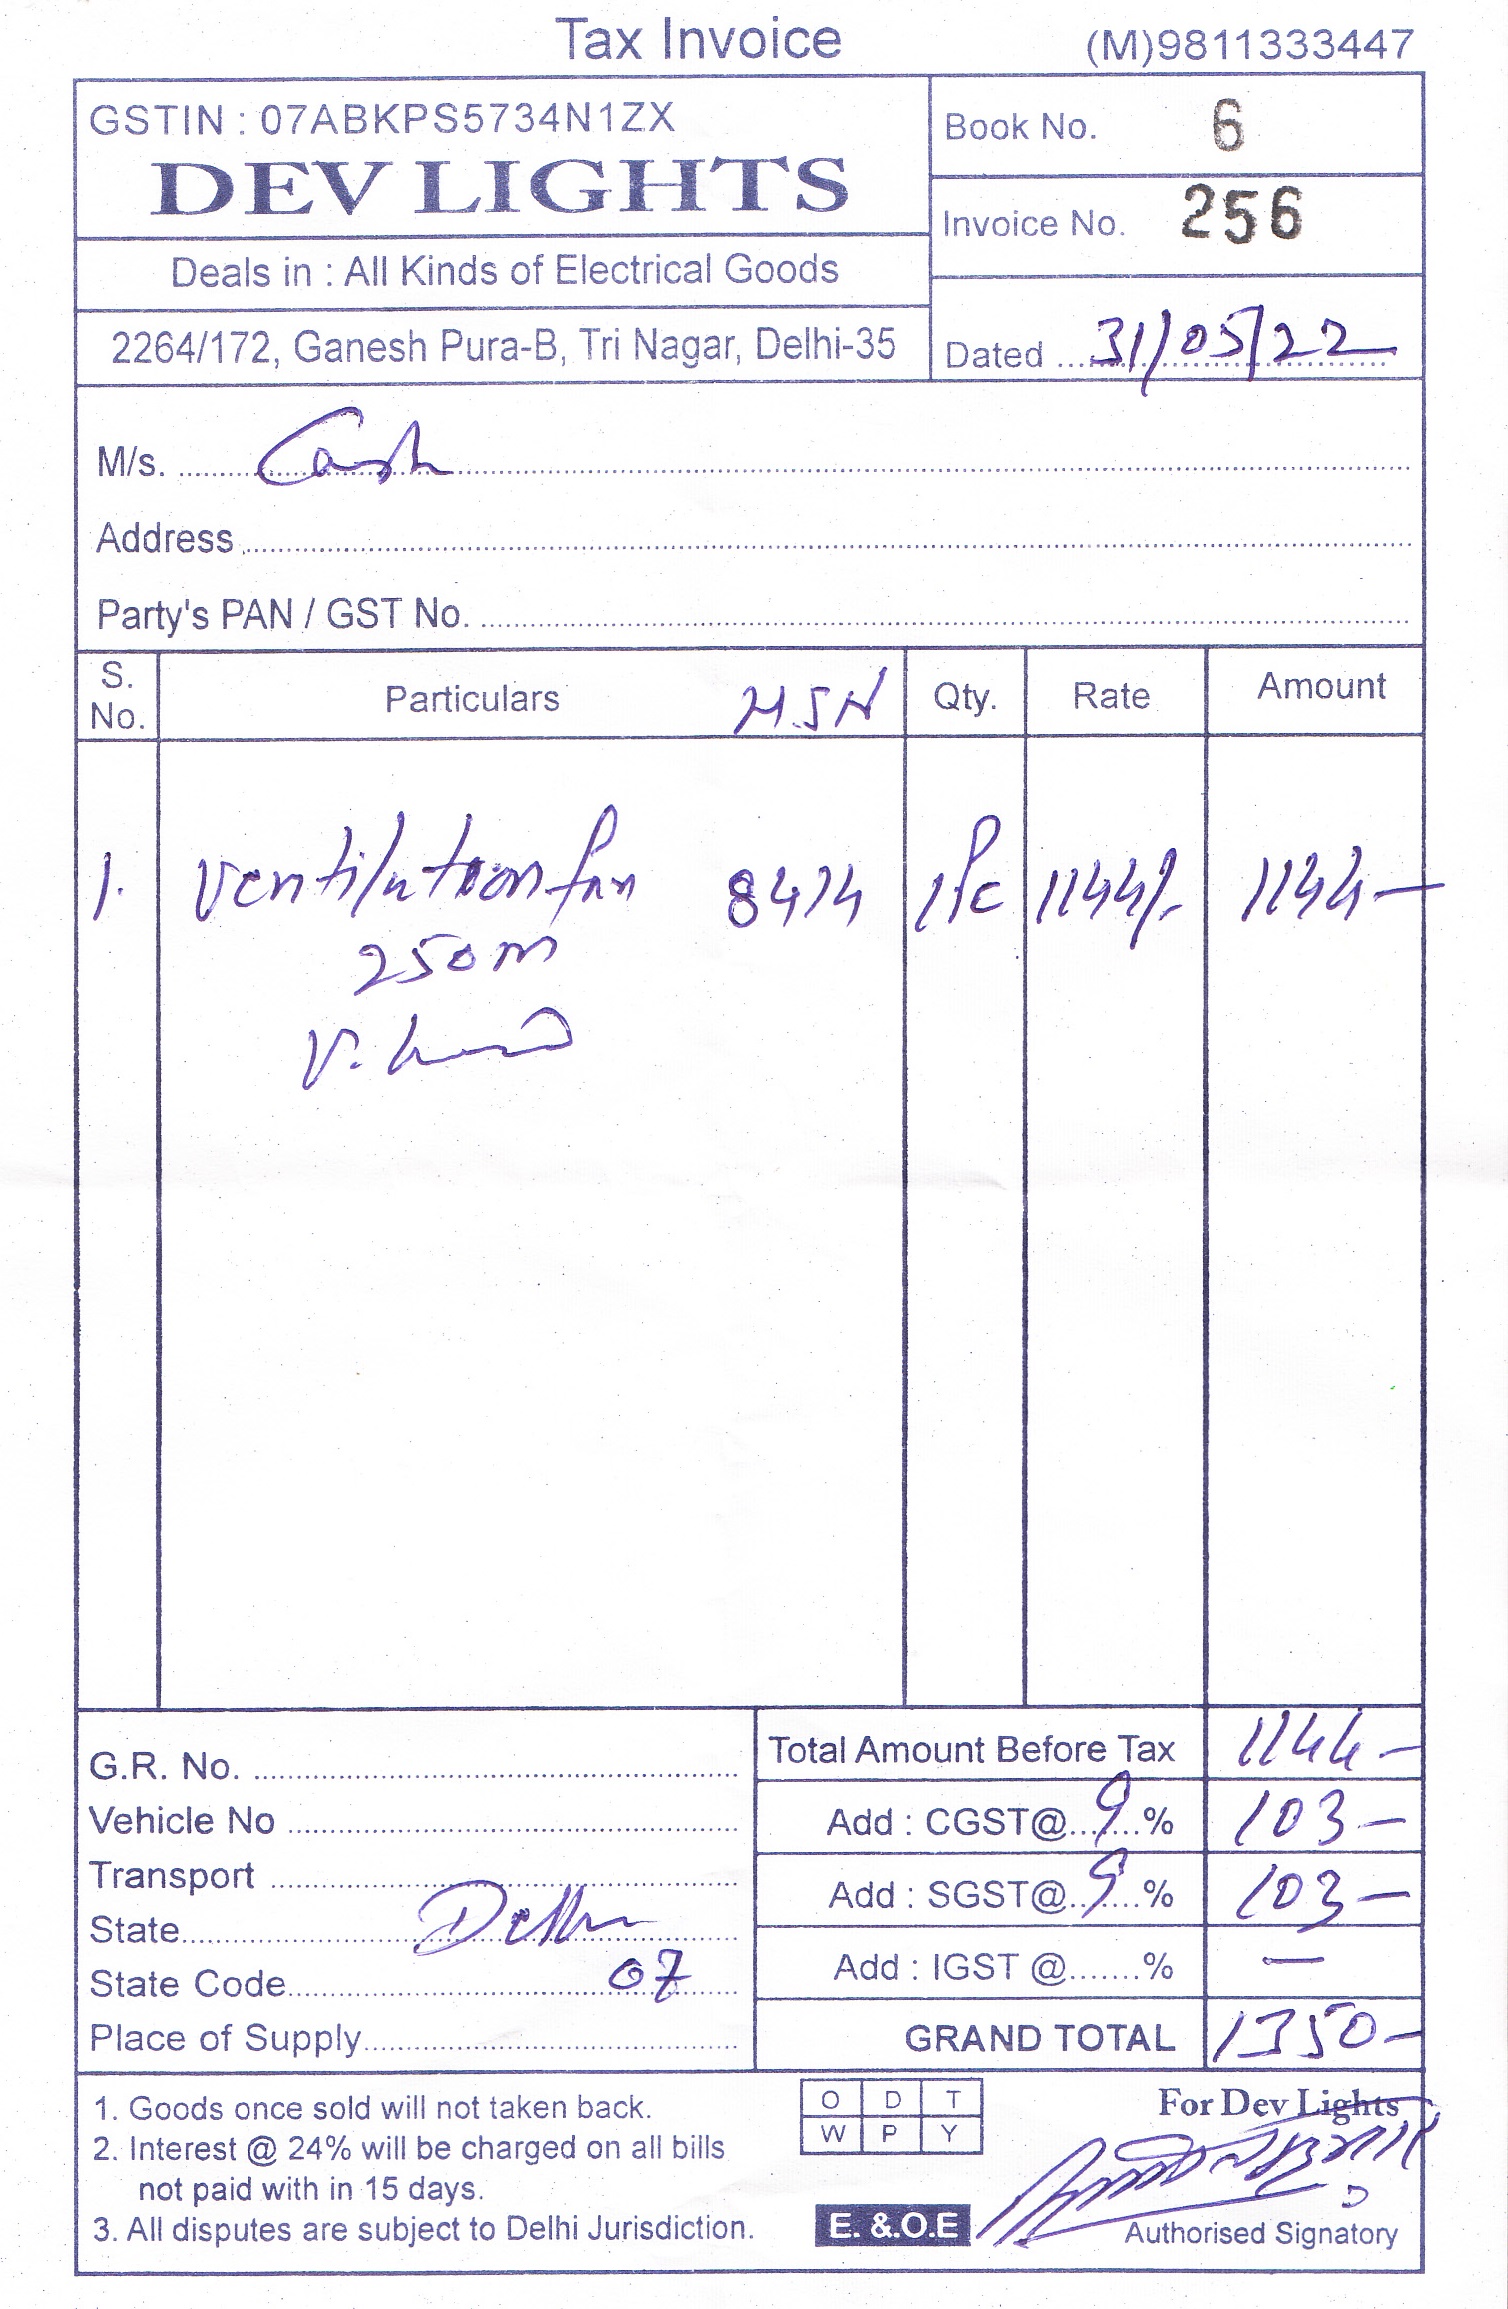 Tax Invoice (M)9811333447
GSTIN : 07ABKPS5734N1ZX
DEV LIGHTS
Deals in : All Kinds of Electrical Goods
2264/172, Ganesh Pura-B, Tri Nagar, Delhi-35
Book No. 6
Invoice No. 256
Dated 31/05/22
M/s. Cash
Address
Party's PAN / GST No.
S. No. Particulars HSN Qty. Rate Amount
1. Ventilation fan 8414 1Pc 1144/- 1144-
250m
G.R. No.
Vehicle No
Transport
State Delhi
State Code 07
Place of Supply
Total Amount Before Tax 1144-
Add : CGST@ 9 % 103-
Add : SGST@ 9 % 103-
Add : IGST @.......% —
GRAND TOTAL 1350-
1. Goods once sold will not taken back.
2. Interest @ 24% will be charged on all bills
not paid with in 15 days.
3. All disputes are subject to Delhi Jurisdiction.
O D T
W P Y
E. &.O.E
For Dev Lights
Authorised Signatory